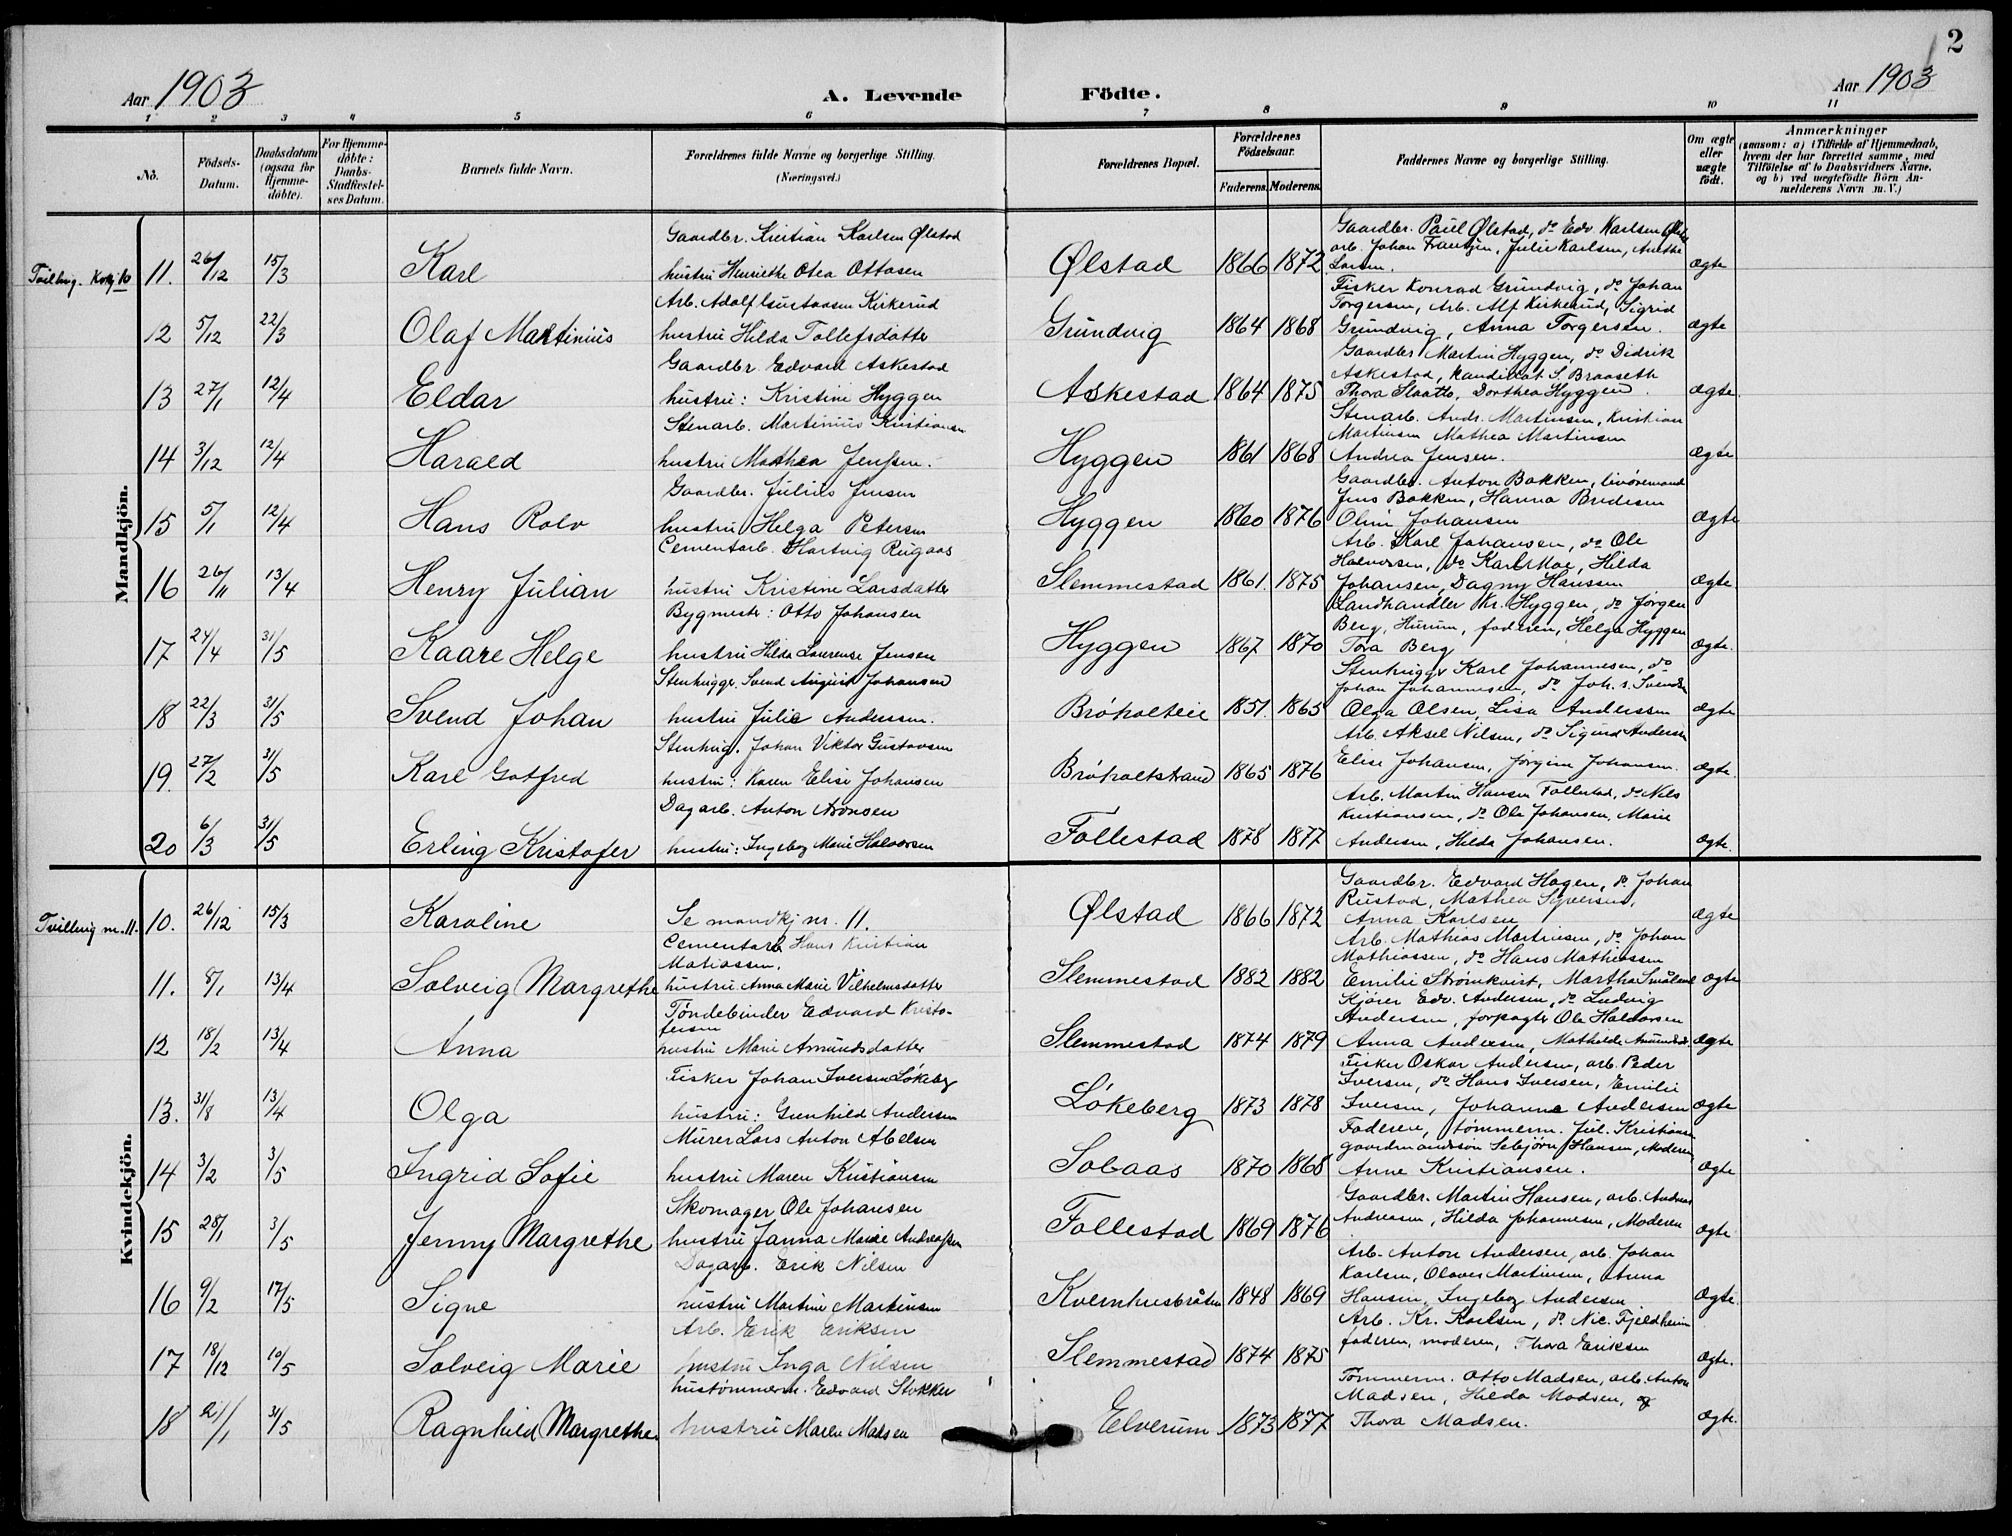 2
Aar 1903 A. Levende Födte. Aar 1903
1 2 3 4 5 6 7 8 9 10 11
No. Födsels-Datum. Daabsdatum (ogsaa for Hjemme-döbte). For Hjemme-döbte: Daabs-Stadfæstel-ses Datum. Barnets fulde Navn. Forældrenes fulde Navne og borgerlige Stilling. (Næringsvei.) Forældrenes Bopæl. Forældrenes Födselsaar. Faderens. Moderens. Faddernes Navne og borgerlige Stilling. Om ægte eller uægte födt. Anmærkninger (saasom: a) i Tilfælde af Hjemmedaab, hvem der har forrettet samme, med Tilföielse af to Daabsvidners Navne, og b) ved uægtefödte Börn An-melderens Navn m. V.)
Mandkjön.
Gaardbr. Kristian Karlsen Ølstad Gaardbr. Paul Ølstad, do Edv Karlsen
arb. Johan Frantzen, Julie Karlsen,
Tvilling. Kvkj 10 11. 26/12 15/3 Karl hustru Henriette Otea Ottosen Ølstad 1866 1872 Larsen. ægte
Arb. Adolf Gustavsen Kirkerud Fisker Konrad Grundvig, do Johan
Torgersen, Arb. Alf Kirkerud, Sigrid
12 5/12 22/3 Olaf Martinius hustru Hilda Tollefsdatter Grundvig 1864 1868 Grundvig, Anna Torgersen. ægte
Gaardbr. Edvard Askestad Gaardbr Martin Hyggen, do Didrik
Askestad, kandidat S. Braaseth
13 27/1 12/4 Eldar hustru: Kristine Hyggen Askestad 1864 1875 Thora Slaatto, Dorthea Hyggen. ægte.
Stenarb. Martinius Kristiansen Stenarb. Andr. Martinsen, Kristian
Martinsen Mathea Martinsen
14 3/12 12/4 Harald hustru Mathea Jenssen. Hyggen 1861 1868 Andrea Jensen. ægte
Gaardbr. Julius Jensen Gaardbr. Anton Bakken,
Jens Bakken, Hanna Bredesen
15 5/1 12/4 Hans Rolv hustru Helga Petersen Hyggen 1860 1876 Oline Johansen ægte
Cementarb. Hartvig Rugaas Arb. Karl Johansen, do Ole
Halvorsen, do Karl Moe, Hilda
16 26/11 13/4 Henry Julian hustru Kristine Larsdatter Slemmestad 1861. 1875 Johansen, Dagny Hansen ægte
Bygmester: Otto Johansen Landhandler Kr. Hyggen, do Jørgen
Berg, Hurum, faderen, Helga Hyggen
17 24/4 31/5 Kaare Helge hustru Hilda Laurense Jensen Hyggen 1867 1870 Tora Berg ægte.
Stenhugger. Svend August Johansen Stenhugger Karl Johannesen, do
Johan Johannesen, do Joh. s. Svendsen
18 22/3 31/5 Svend Johan hustru Julie Andersen. Bröholteie 1851. 1865 Olga Olsen, Lisa Anderssen ægte
Stenhug. Johan Viktor Gustavsen Arb. Aksel Nilsen, do Sigurd Andersen
19. 27/2 31/5 Karl Gotfred hustru: Karen Elise Johansen Bröholtstrand 1865 1876 Elise Johansen, Jørgine Johansen. ægte.
Dagarb. Anton Aronsen Arb. Martin Hansen Follestad, do Nils
Kristiansen, do Ole Johansen, Marie
20 6/3 31/5 Erling Kristofer hustru: Ingeborg Marie Halvorsen Follestad 1878 1877 Andersen, Hilda Johansen. ægte.
Kvindekjön.
Gaardbr. Edvard Hagen, do Johan
Rustad, Mathea Syversen,
Tvilling m. 11. 10. 26/12 15/3 Karoline Se mandkj nr. 11. Ølstad 1866 1872 Anna Karlsen ægte
Cementarb Hans Kristian Arb. Mathias Martinsen, do Johan
Matiassen, Mathiassen, do Hans Mathiassen
11. 8/1 13/4 Solveig Margrethe hustru Anna Marie Vilhelmsdatter Slemmestad 1882 1882 Emilie Strömkvist, Martha ægte
Töndebinder Edvard Kristo- Kjörer Edv. Andersen, do Ludvig
fersen Andersen, forpagter Ole Halvorsen
12 18/2 13/4 Anna hustru Marie Amundsdatter Slemmestad 1874 1879 Anna Andersen, Mathilde Amundsd. ægte
Fisker Johan Iversen Løkeberg Fisker Oskar Andersen, arb. Peder
Iversen, do Hans Iversen, Emilie
13. 31/8 13/4 Olga hustru: Gunhild Andersen Løkeberg 1873 1878 Iversen, Johanne Andersen ægte
Murer Lars Anton Abelsen Faderen, tömmerm. Jul. Kristiansen
gaardmandssön Sebjörn Hansen, Moderen
14 3/2 3/5 Ingrid Sofie hustru Maren Kristiansen Sobaas 1870 1868 Anne Kristiansen. ægte
Skomager Ole Johansen Gaardbr. Martin Hansen, arb. Andreas
15 28/1 3/5 Jenny Margrethe hustru Janna Marie Andreassen Follestad 1869 1876 Andreasen, Hilda Johannesen, Moderen ægte.
Dagarb. Erik Nilsen Arb. Anton Andersen, arb. Johan
Karlsen, Olaves Martinsen, Anna
16 9/2 17/5 Signe hustru Martine Martinsen Kvernhusbråten 1848 1869 Hansen, Ingeborg Andersen ægte.
Arb. Erik Eriksen Arb. Kr. Karlsen, do Nic. Fjeldheim
17 18/12 10/5 Solveig Marie hustru Inga Nilsen Slemmestad 1874 1875 faderen, moderen, Thora Eriksen ægte.
hustömmerm. Edvard Stokker Tömmerm. Otto Madsen, arb. Anton
Madsen, Hilda Madsen, og
18 21/1 31/5 Ragnhild Margrethe. hustru Maren Madsen Elverum 1873 1877 Thora Madsen. ægte.